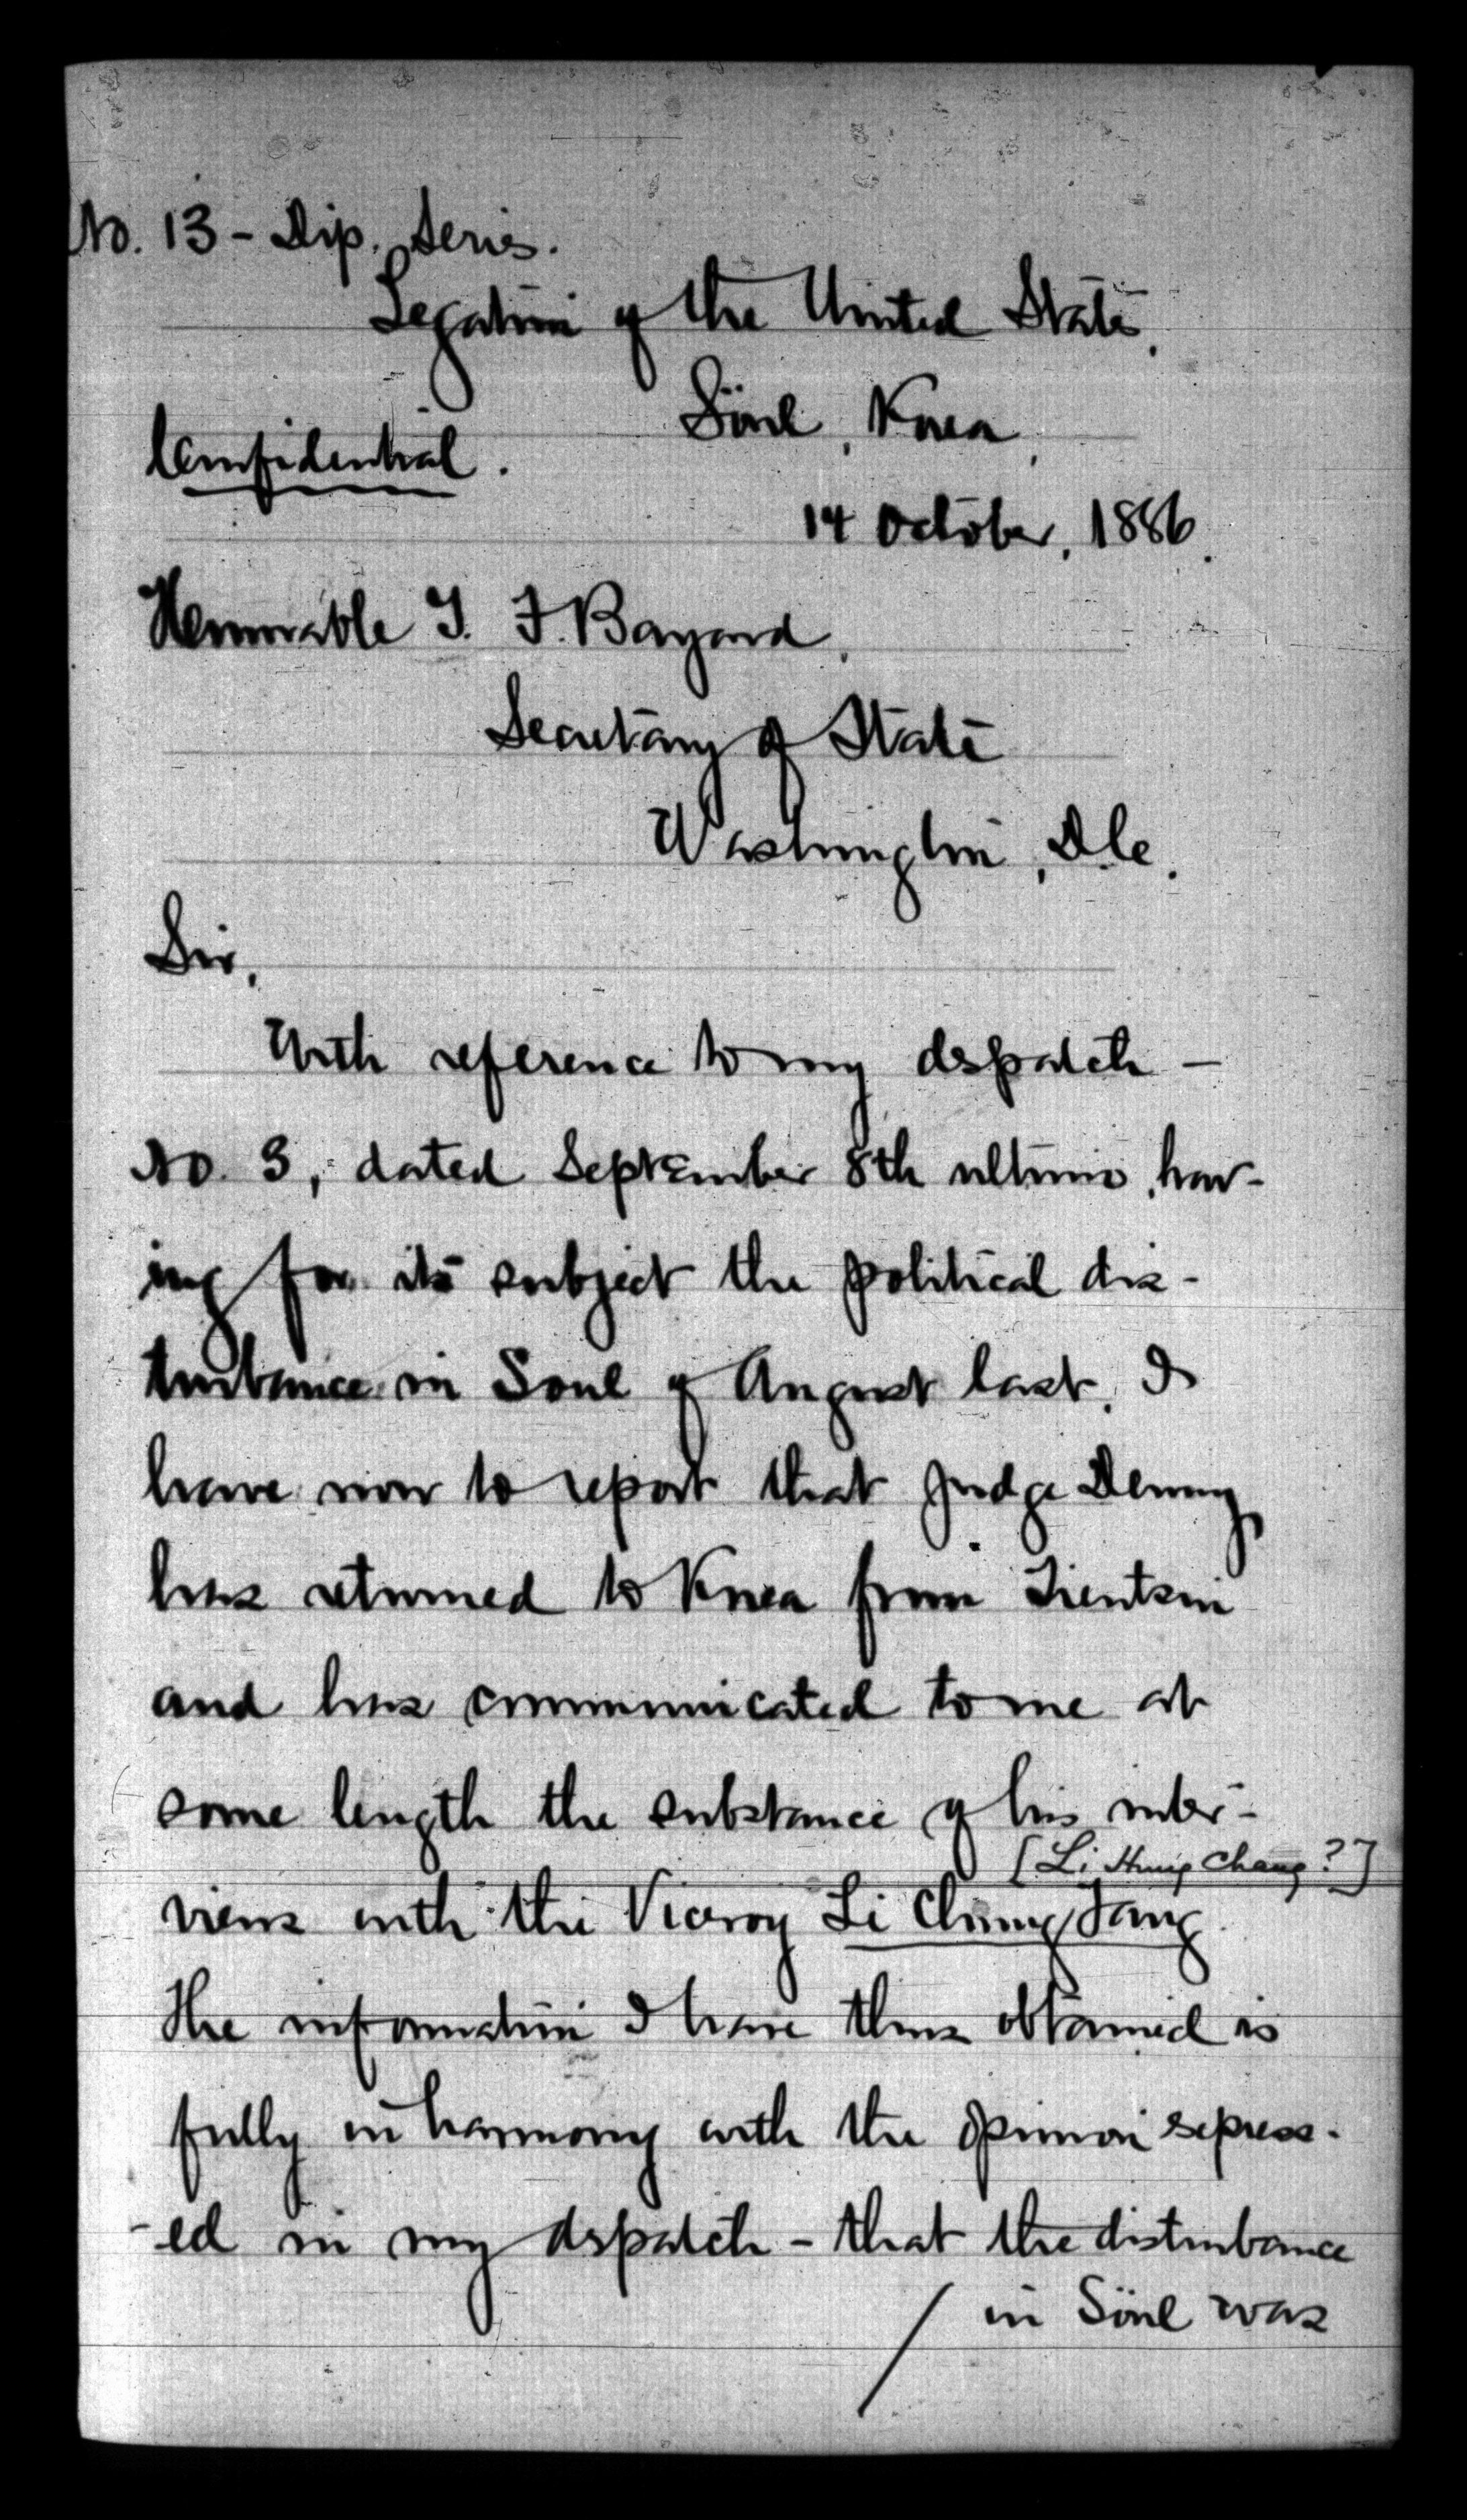 No. 13 - Dip. Series.
Legation of the United States,
Söul, Korea,
Confidential.
14 October, 1886.
Honorable T. F. Bayard,
Secretary of State
Washington, D.C.
Sir,
With reference to my dispatch -
No. 3, dated September 8th ultimo, hav-
ing for its subject the political dis-
turbance in Soul of August last, I
have now to report that Judge Denny
has returned to Korea from Tientsin
and has communicated to me at
some length the substance of his inter-
[Li Hung Chang?]
views with the Viceroy Li Chung Tang.
The information I have thus obtained is
fully in harmony with the opinion express-
-ed in my dispatch - that the disturbance
/ in Söul was